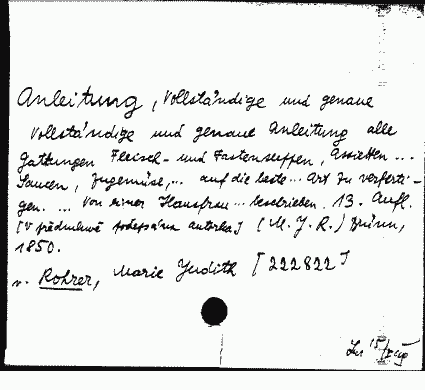 Anleitung, Vollständige und genaue
Vollständige und genaue Anleitung alle
Gattungen Fleisch- und Fastensuppen, Assietten ...
Saucen, Zugemüse,... auf die beste... Art zu verferti-
gen. ... Von einer Hausfrau ... beschrieben. 13. Aufl.
[V předmluvě podepsána autorka] (M. J. R.) Brünn,
1850.
v. Rohrer, Marie Judith [222822]